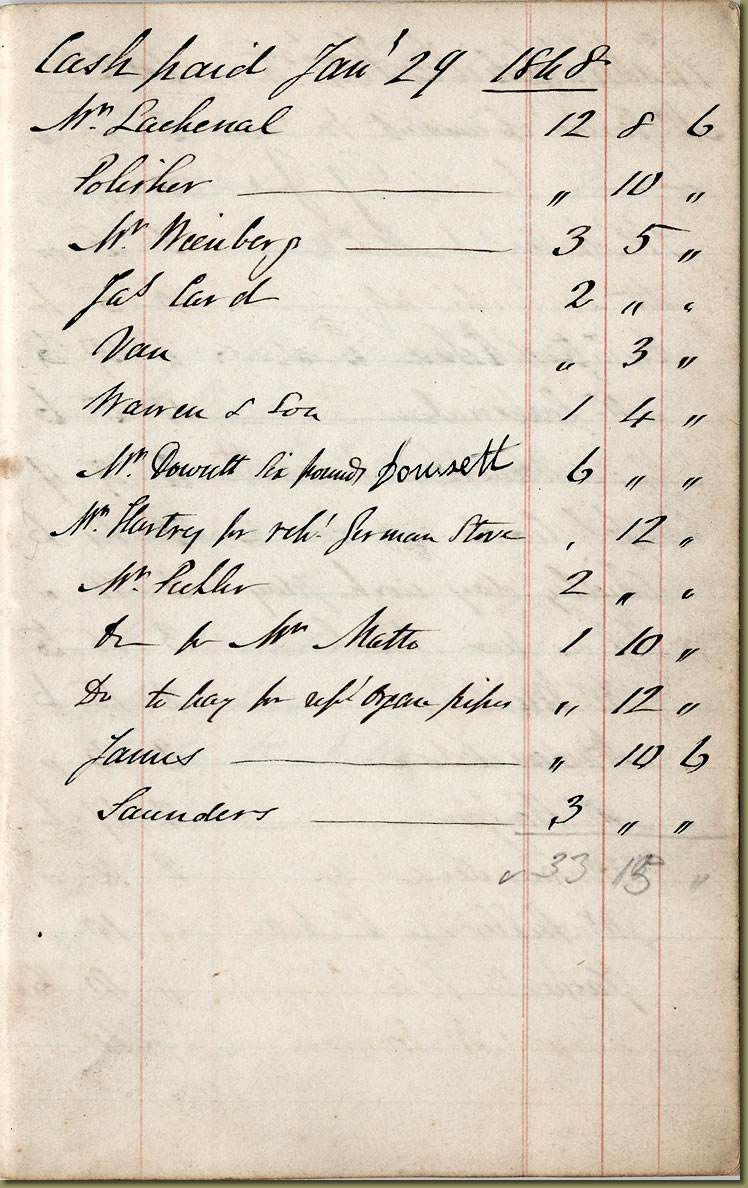 Cash paid Jan' 29 1868
Mr. Lachenal 12 8 6
Polisher — " 10 "
Mr Weinberg — 3 5 "
Jas Card 2 " "
Van " 3 "
Warren & Son 1 4 "
Mr. Dowsett Six pounds Dowsett 6 " "
Mr. Hartry for German Stove " 12 "
Mr. Pichler 2 " "
Do for Mr Matto 1 10 "
Do to day for Organ pipes " 12 "
James — " 10 6
Saunders — 3 " "
33 15 "